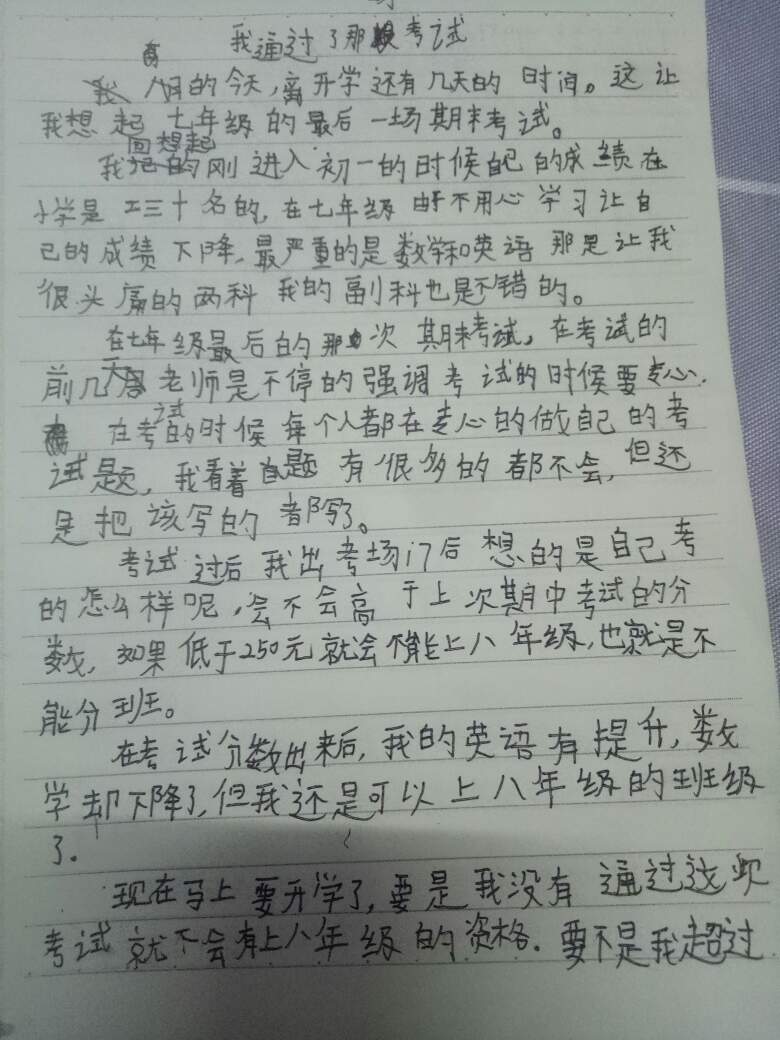 我通过了那次考试
八月的今天,离开学还有几天的时间。这让
我想起七年级的最后一场期末考试。
我回想起刚进入初一的时候自己的成绩在
小学是二三十名的,在七年级由于不用心学习让自
己的成绩下降,最严重的是数学和英语那是让我
很头痛的两科我的副科也是不错的。
在七年级最后的那次期末考试,在考试的
前几天老师是不停的强调考试的时候要专心.
在考试的时候每个人都在专心的做自己的考
试题,我看着题有很多的都不会,但还
是把该写的都写了。
考试过后我出考场门后想的是自己考
的怎么样呢,会不会高于上次期中考试的分
数,如果低于250元就会不能上八年级,也就是不
能分班。
在考试分数出来后,我的英语有提升,数
学却下降了,但我还是可以上八年级的班级
了.
现在马上要开学了,要是我没有通过这次
考试就不会有上八年级的资格.要不是我超过